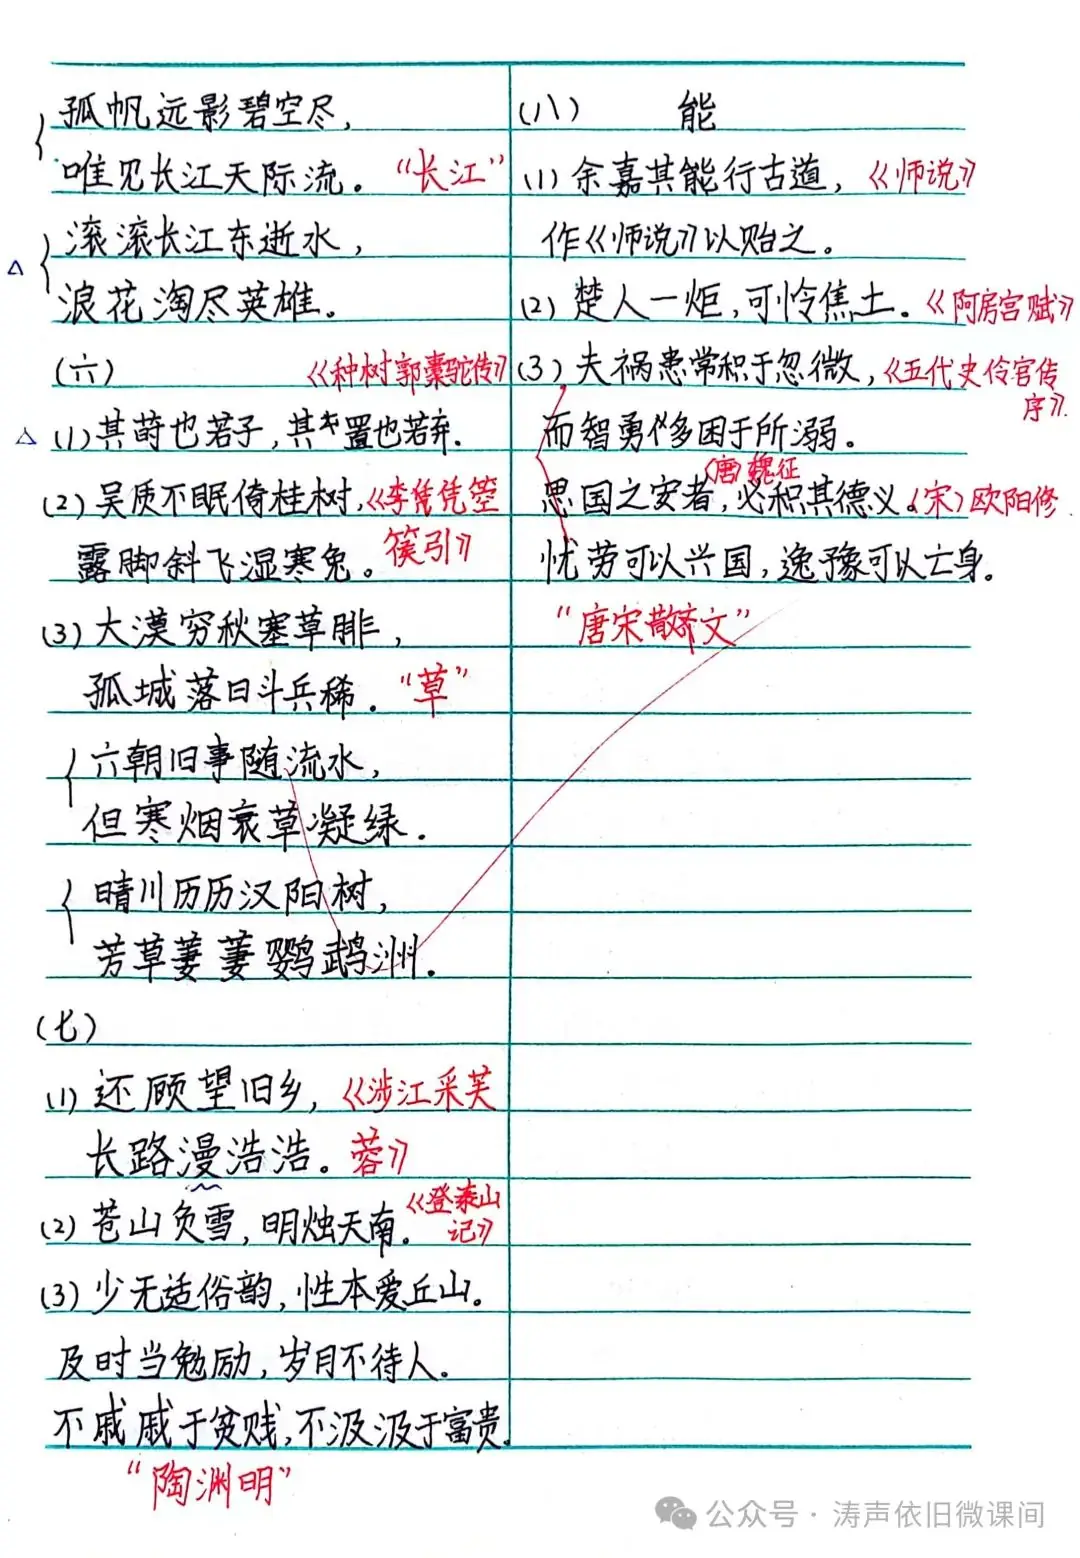 孤帆远影碧空尽，
唯见长江天际流。 “长江”
滚滚长江东逝水，
△
浪花淘尽英雄。
(六) 《种树郭橐驼传》
△ (1) 其莳也若子，其置也若弃.
(2) 吴质不眠倚桂树，《李凭凭箜
露脚斜飞湿寒兔。 篌引》
(3) 大漠穷秋塞草腓，
孤城落日斗兵稀. “草”
六朝旧事随流水，
但寒烟衰草凝绿.
晴川历历汉阳树，
芳草萋萋鹦鹉洲.
(七)
(1) 还顾望旧乡，《涉江采芙
长路漫浩浩。 蓉》
(2) 苍山负雪，明烛天南. 《登泰山
记》
(3) 少无适俗韵，性本爱丘山.
及时当勉励，岁月不待人.
不戚戚于贫贱，不汲汲于富贵.
“陶渊明”
(八) 能
(1) 余嘉其能行古道，《师说》
作《师说》以贻之。
(2) 楚人一炬，可怜焦土. 《阿房宫赋》
(3) 夫祸患常积于忽微，《五代史伶官传
序》.
而智勇多困于所溺.
(唐)魏征
思国之安者，必积其德义. (宋)欧阳修
忧劳可以兴国，逸豫可以亡身.
“唐宋散文”
公众号·涛声依旧微课间